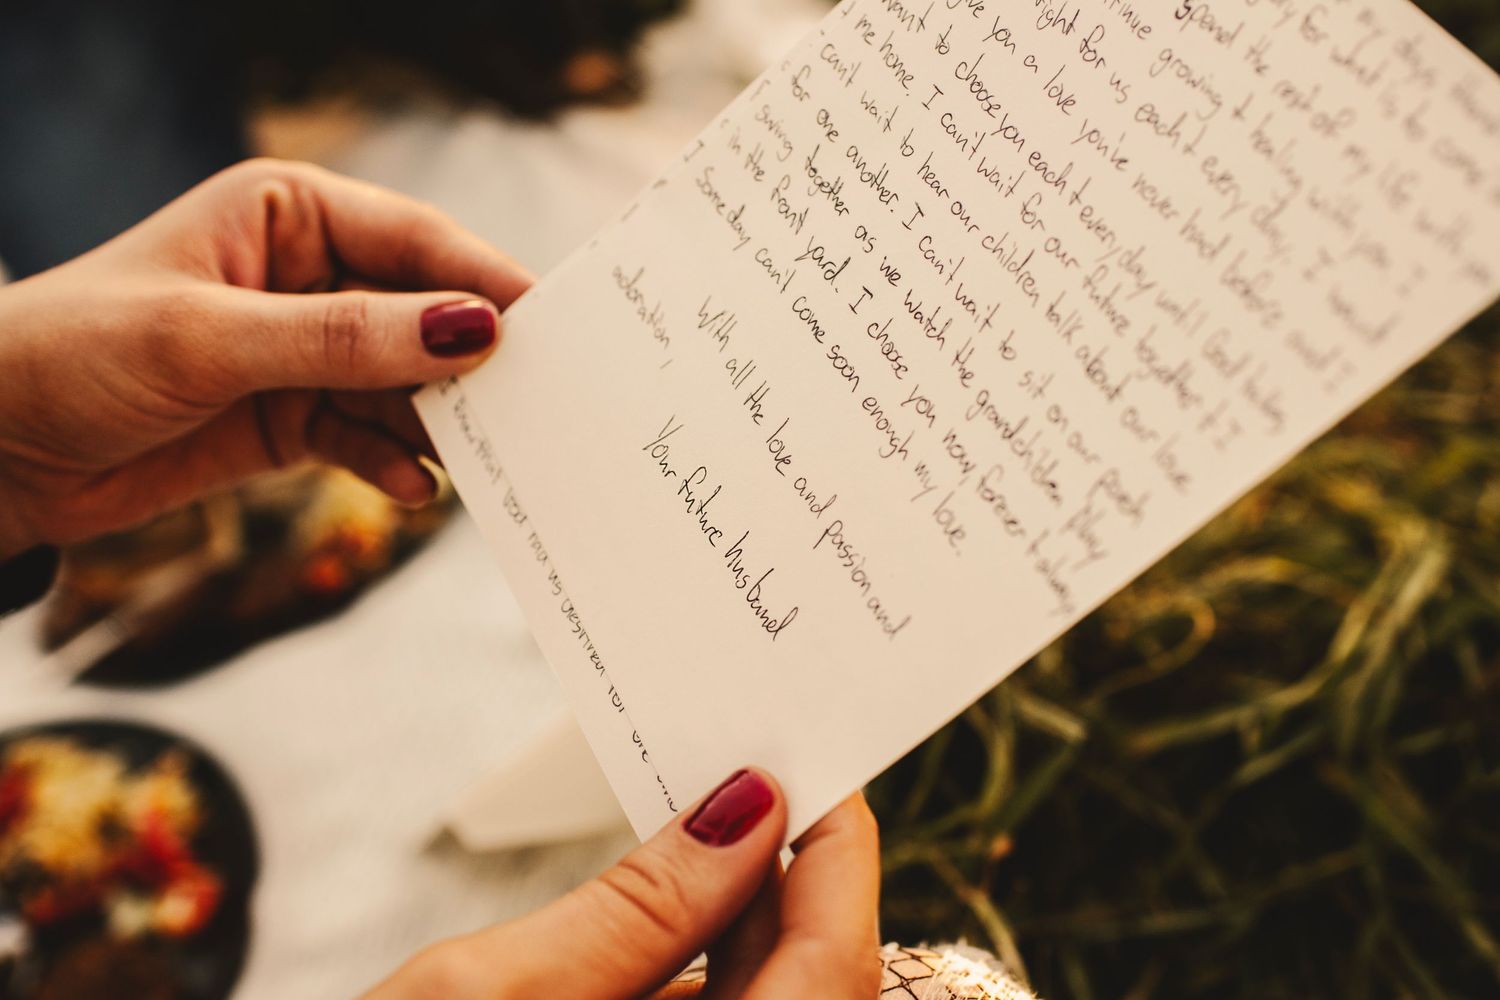 my days
for what is to come
spend the rest of my life with
continue growing & healing with you. I
right for us each & every day. I
give you a love you've never had before and I
want to choose you each & every day until God
me home. I can't wait for our future together & I
can't wait to hear our children talk about our love
for one another. I can't wait to sit on our porch
swing together as we watch the grandchildren play
in the front yard. I choose you now, forever & always
Some day can't come soon enough my love.
With all the love and passion and
adoration,
Your future husband